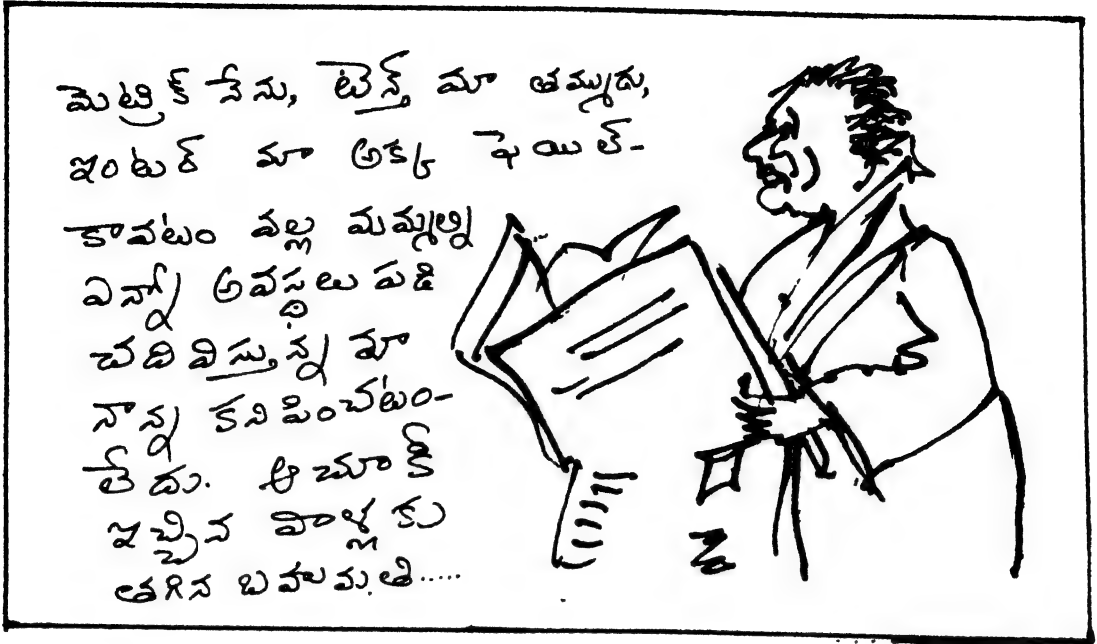 మెట్రిక్ నేను, టెన్త్ మా తమ్ముడు,
ఇంటర్ మా అక్క ఫెయిల్-
కావటం వల్ల మమ్మల్ని
ఎన్నో అవస్థలు పడి
చదివిస్తున్న మా
నాన్న కనిపించటం-
లేదు. ఆచూకీ
ఇచ్చిన వాళ్లకు
తగిన బహుమతి.....